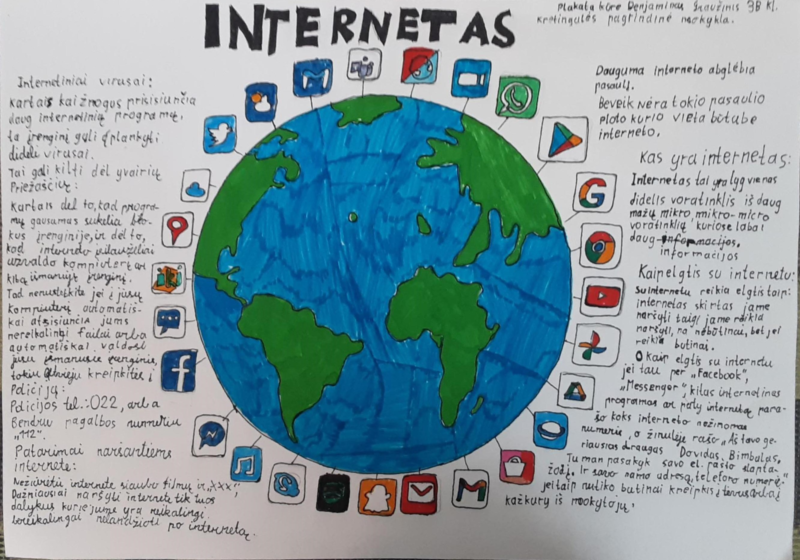 INTERNETAS
Plakatą kūrė Benjaminas 3B kl.
Kretingulės pagrindinė mokykla.
Internetiniai virusai:
Kartais kai žmogus prisisiunčia
daug internetinių programų,
tą įrenginį gali aplankyti
dideli virusai.
Tai gali kilti dėl įvairių
Priežasčių:
Kartais dėl to, tad progra-
mų gausumas sukelia
kus įrenginyje, ir dėl to,
kad interneto
užvaldo kompiuterį ar
kitą išmanųjį įrenginį.
Tad nenustebkite jei į jūsų
kompiuterį automatiš-
kai atsisiunčia jums
nereikalingi failai arba
automatiškai valdosi
jūsų išmanusis įrenginys,
tokiu atveju kreipkitės į
Policiją:
Policijos tel.: 022, arba
Bendru pagalbos numeriu
„112".
Patarimai naršantiems
internete:
Nežiūrėti internete siaubo filmų ir „XXX",
Dažniausiai naršyti internete tik tuos
dalykus kurie jums yra reikalingi
bereikalingai nelandžioti po internetą.
Dauguma interneto abglėbia
pasaulį.
Beveik nėra tokio pasaulio
ploto kurio vieta būtų be
interneto.
Kas yra internetas:
Internetas tai yra lyg vienas
didelis voratinklis iš daug
mažų mikro, mikro-micro
voratinklių kuriose labai
daug informacijos,
informacijos
Kaip elgtis su internetu:
Su internetu reikia elgtis taip:
internetas skirtas jame
naršyti taigi jame reikia
naršyti, na nebūtinai, bet jei
reikia būtinai.
O kaip elgtis su internetu
jei tau per „Facebook",
„Messenger", kitas internetines
programas ar patį internetą para-
šo koks interneto nežinomas
numeris, o žinutėje rašo „Aš tavo ge-
riausias draugas Dovidas, Bimbalas,
Tu man pasakyk savo el. pašto slapta-
žodį. Ir savo namo adresą, telefono numerį."
jei taip nutiko būtinai kreipkis į tėvus arba į
kažkurį iš mokytojų!